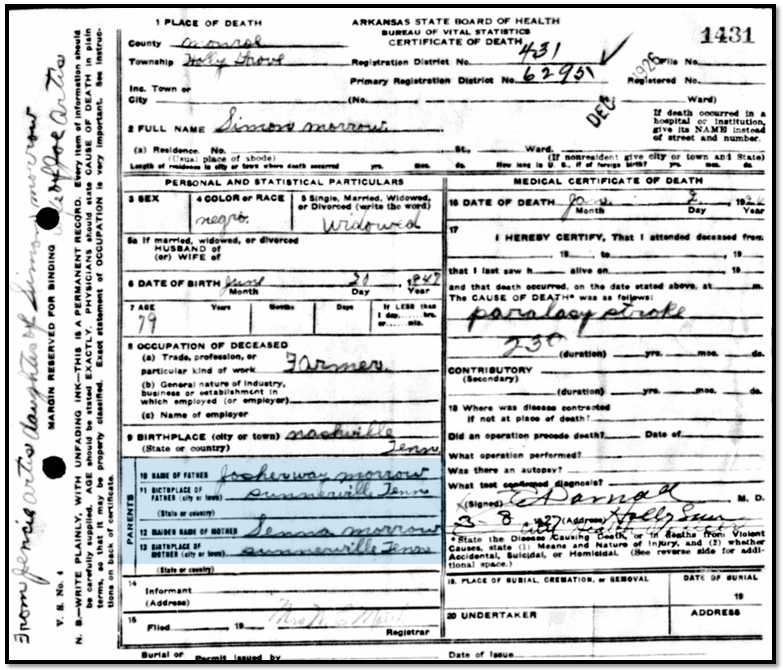 1 PLACE OF DEATH
County Monroe
Township Holly Grove
Inc. Town or
City
ARKANSAS STATE BOARD OF HEALTH
BUREAU OF VITAL STATISTICS
CERTIFICATE OF DEATH
1431
Registration District No. 431
File No.
Primary Registration District No. 62951
Registered No.
DEC 1926
(No. St., Ward)
If death occurred in a
hospital or institution,
give its NAME instead
of street and number.
2 FULL NAME Simon Morrow
(a) Residence. No. St., Ward.
(Usual place of abode)
(If nonresident give city or town and State)
Length of residence in city or town where death occurred yrs. mos. ds. How long in U. S., if of foreign birth? yrs. mos. ds.
PERSONAL AND STATISTICAL PARTICULARS
3 SEX
4 COLOR or RACE
negro.
5 Single, Married, Widowed,
or Divorced (write the word)
Widowed
5a If married, widowed, or divorced
HUSBAND of
(or) WIFE of
6 DATE OF BIRTH June 20 1847
Month Day Year
7 AGE Years Months Days If LESS than
1 day, hrs.
or min.
79
8 OCCUPATION OF DECEASED
(a) Trade, profession, or
particular kind of work Farmer.
(b) General nature of industry,
business or establishment in
which employed (or employer)
(c) Name of employer
9 BIRTHPLACE (city or town) nashville
(State or country) Tenn
PARENTS
10 NAME OF FATHER Josherway morrow
11 BIRTHPLACE OF
FATHER (city or town) sunnerville Tenn
(State or country)
12 MAIDEN NAME OF MOTHER Senna morrow
13 BIRTHPLACE OF
MOTHER (city or town) sunnerville Tenn
(State or country)
14
Informant
(Address)
15
Filed , 19
Registrar
MEDICAL CERTIFICATE OF DEATH
16 DATE OF DEATH Jan 2 1926
Month Day Year
17
I HEREBY CERTIFY, That I attended deceased from
, 19 to , 19
that I last saw h alive on , 19
and that death occurred, on the date stated above, at m.
The CAUSE OF DEATH* was as follows:
paralasy stroke
(duration) yrs. mos. ds.
CONTRIBUTORY
(Secondary)
(duration) yrs. mos. ds.
18 Where was disease contracted
if not at place of death?
Did an operation precede death? Date of
What operation performed?
Was there an autopsy?
What test confirmed diagnosis?
(Signed) M. D.
3-8 1927 (Address) Holly
*State the Disease Causing Death, or in deaths from Violent
Causes, state (1) Means and Nature of Injury, and (2) whether
Accidental, Suicidal, or Homicidal. (See reverse side for addi-
tional space.)
19. PLACE OF BURIAL, CREMATION, or REMOVAL
DATE OF BURIAL
19
20 UNDERTAKER
ADDRESS
Burial or Permit issued by
Date of Issue
From Jennie artis daughter of Simon morrow
wife of Joe Artis
V. S. No. 4
MARGIN RESERVED FOR BINDING
N. B.—WRITE PLAINLY, WITH UNFADING INK—THIS IS A PERMANENT RECORD. Every item of information should
be carefully supplied. AGE should be stated EXACTLY. PHYSICIANS should state CAUSE OF DEATH in plain
terms, so that it may be properly classified. Exact statement of OCCUPATION is very important. See instruc-
tions on back of certificate.